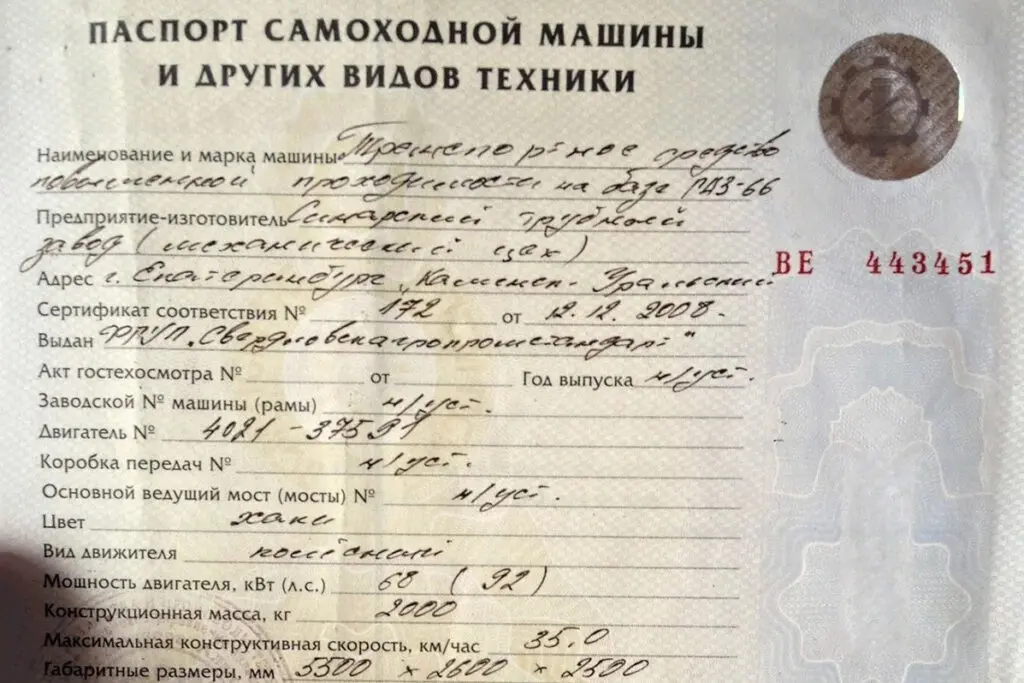 ПАСПОРТ САМОХОДНОЙ МАШИНЫ
И ДРУГИХ ВИДОВ ТЕХНИКИ
Наименование и марка машины Транспортное средство
повышенной проходимости на базе ГАЗ-66
Предприятие-изготовитель Синарский трубный
завод (механический цех)
Адрес г. Екатеринбург "Каменск-Уральский
ВЕ 443451
Сертификат соответствия № 172 от 12.12.2008
Выдан ФГУП "Свердловскагропромстандарт"
Акт гостехосмотра № от Год выпуска н/уст.
Заводской № машины (рамы) н/уст.
Двигатель № 4021-37591
Коробка передач № н/уст.
Основной ведущий мост (мосты) № н/уст.
Цвет хаки
Вид движителя колёсный
Мощность двигателя, кВт (л.с.) 68 (92)
Конструкционная масса, кг 2000
Максимальная конструктивная скорость, км/час 35.0
Габаритные размеры, мм 5500 × 2600 × 2500